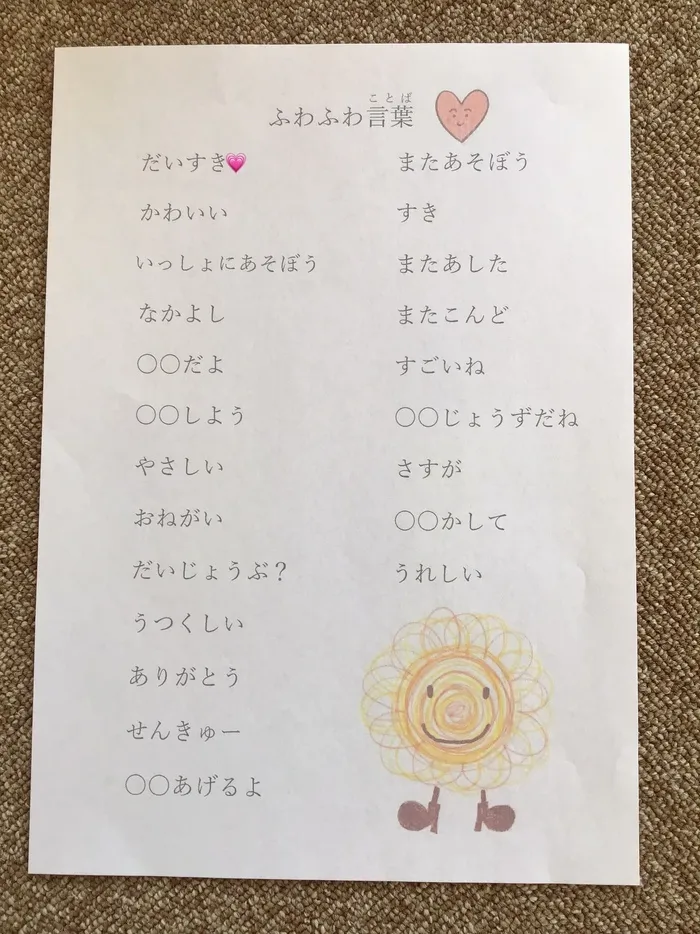 ことば
ふわふわ言葉
だいすき💗
かわいい
いっしょにあそぼう
なかよし
〇〇だよ
〇〇しよう
やさしい
おねがい
だいじょうぶ？
うつくしい
ありがとう
せんきゅー
〇〇あげるよ
またあそぼう
すき
またあした
またこんど
すごいね
〇〇じょうずだね
さすが
〇〇かして
うれしい